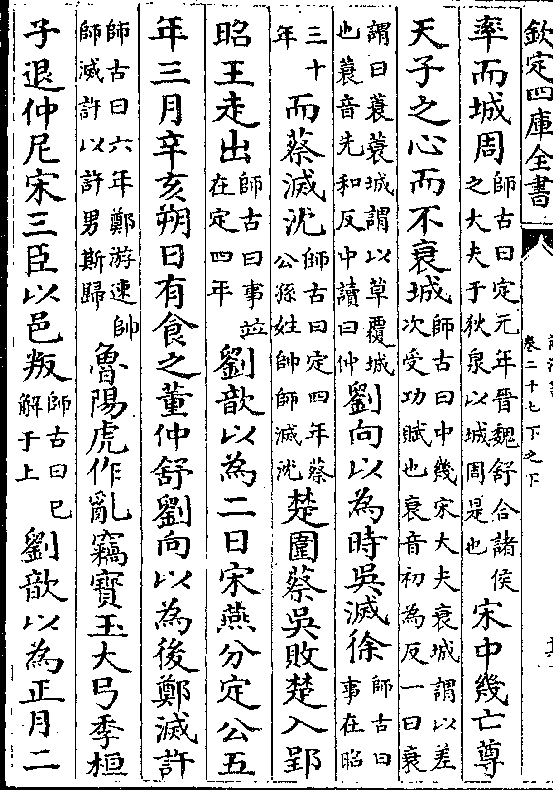 欽定四庫全書
卷二十七下之下
率而城周師古曰定元年晉魏舒合諸侯之大夫于狄泉以城周是也宋中幾亡尊
天子之心而不衰城師古曰中幾宋大夫衰城謂以差次受功賦也衰音初為反一曰衰
謂曰蓑蓑城謂以草覆城也蓑音先和反中讀曰仲劉向以為時吳滅徐師古曰事在昭
三十年而蔡滅沈師古曰定四年蔡公孫姓帥師滅沈楚圍蔡吳敗楚入郢
昭王走出師古曰事竝在定四年劉歆以為二日宋燕分定公五
年三月辛亥朔日有食之董仲舒劉向以為後鄭滅許
師古曰六年鄭游速帥師滅許以許男斯歸魯陽虎作亂竊寶玉大弓季桓
子退仲尼宋三臣以邑叛師古曰已解于上劉歆以為正月二